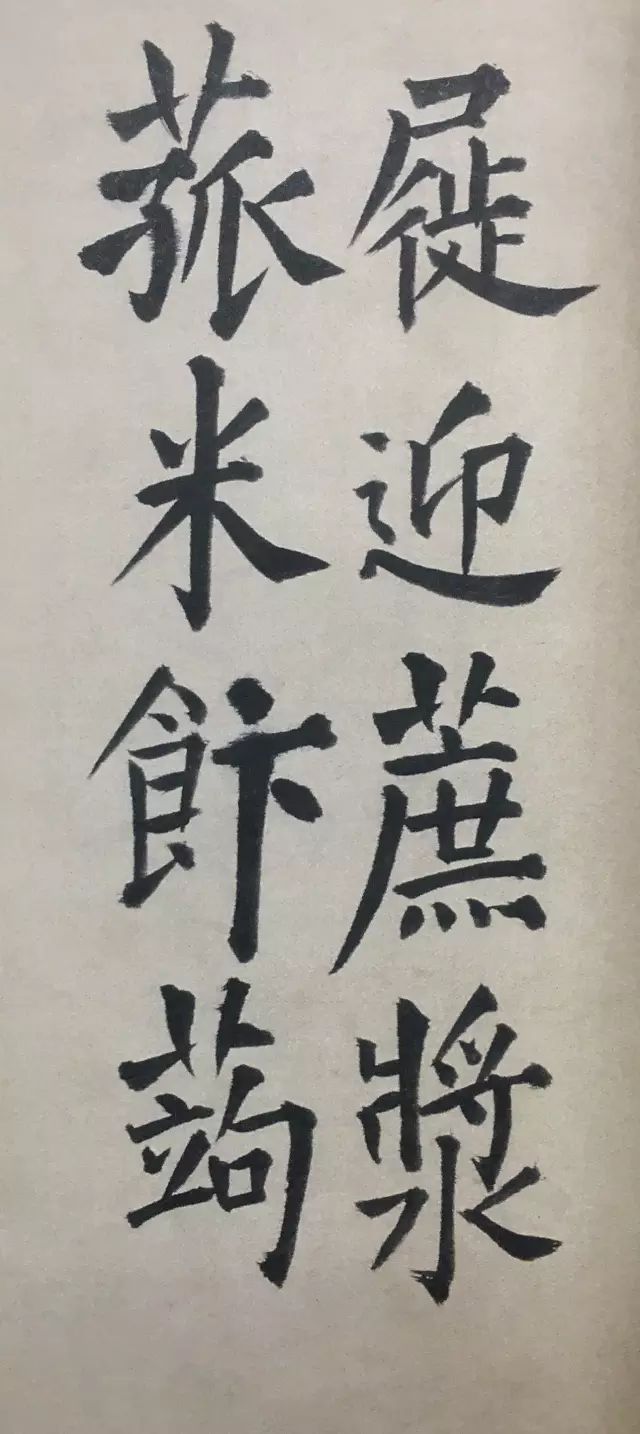 屣迎蔗漿
菰米飰蒟